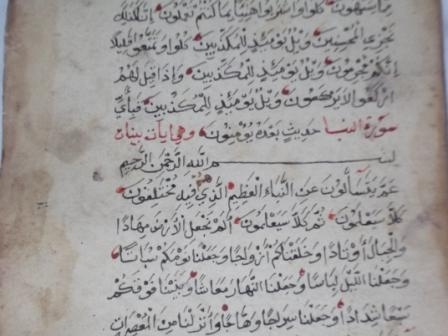 مَا يَشْتَهُونَ كُلُوا وَاشْرَبُوا هَنِيئًا بِمَا كُنْتُمْ تَعْمَلُونَ إِنَّا كَذَلِكَ
نَجْزِي الْمُحْسِنِينَ وَيْلٌ يَوْمَئِذٍ لِلْمُكَذِّبِينَ كُلُوا وَتَمَتَّعُوا قَلِيلًا
إِنَّكُمْ مُجْرِمُونَ وَيْلٌ يَوْمَئِذٍ لِلْمُكَذِّبِينَ وَإِذَا قِيلَ لَهُمُ
ارْكَعُوا لَا يَرْكَعُونَ وَيْلٌ يَوْمَئِذٍ لِلْمُكَذِّبِينَ فَبِأَيِّ
حَدِيثٍ بَعْدَهُ يُؤْمِنُونَ سورة النبا وهي
بسـم الله الرَّحْمٰنِ الرَّحِيمِ
عَمَّ يَتَسَاءَلُونَ عَنِ النَّبَاءِ الْعَظِيمِ الَّذِي هُمْ فِيهِ مُخْتَلِفُونَ
كَلَّا سَيَعْلَمُونَ ثُمَّ كَلَّا سَيَعْلَمُونَ أَلَمْ نَجْعَلِ الْأَرْضَ مِهَادًا
وَالْجِبَالَ أَوْتَادًا وَخَلَقْنَاكُمْ أَزْوَاجًا وَجَعَلْنَا نَوْمَكُمْ سُبَاتًا
وَجَعَلْنَا اللَّيْلَ لِبَاسًا وَجَعَلْنَا النَّهَارَ مَعَاشًا وَبَنَيْنَا فَوْقَكُمْ
سَبْعًا شِدَادًا وَجَعَلْنَا سِرَاجًا وَهَّاجًا وَأَنْزَلْنَا مِنَ الْمُعْصِرَاتِ